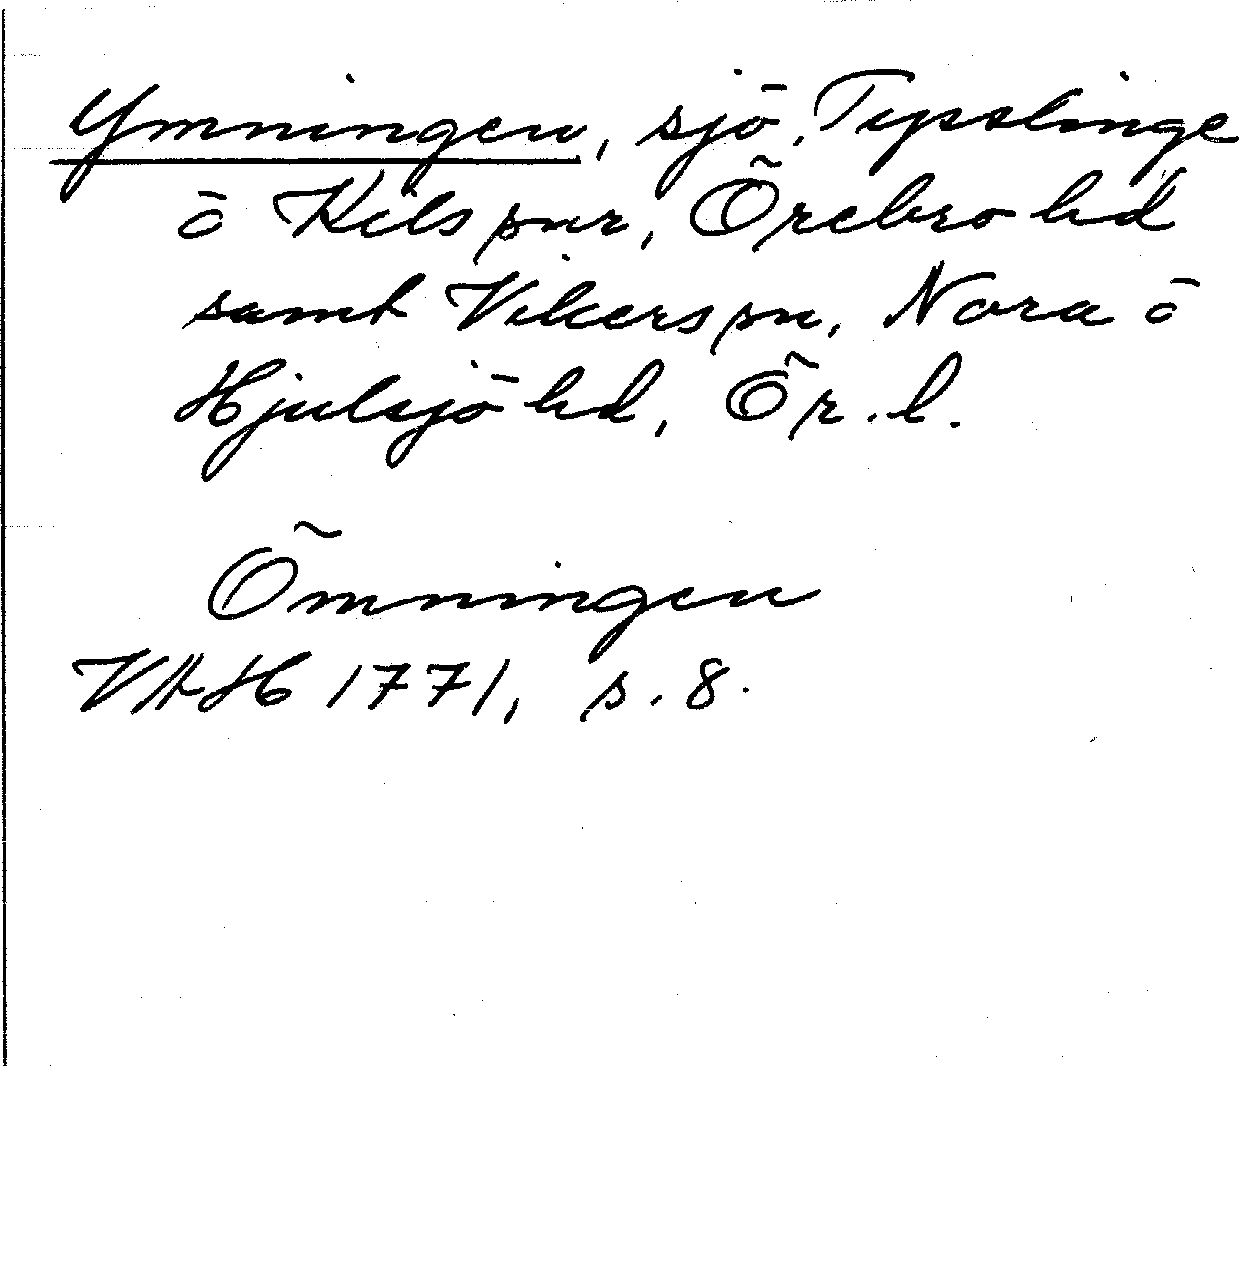 Ymningen, sjö, Tysslinge
ö Kils snr, Örebro hd
samt Vikers sn, Nora ö
Hjulsjö hd, Ör. l.
Ömningen
VAH 1771, s. 8.